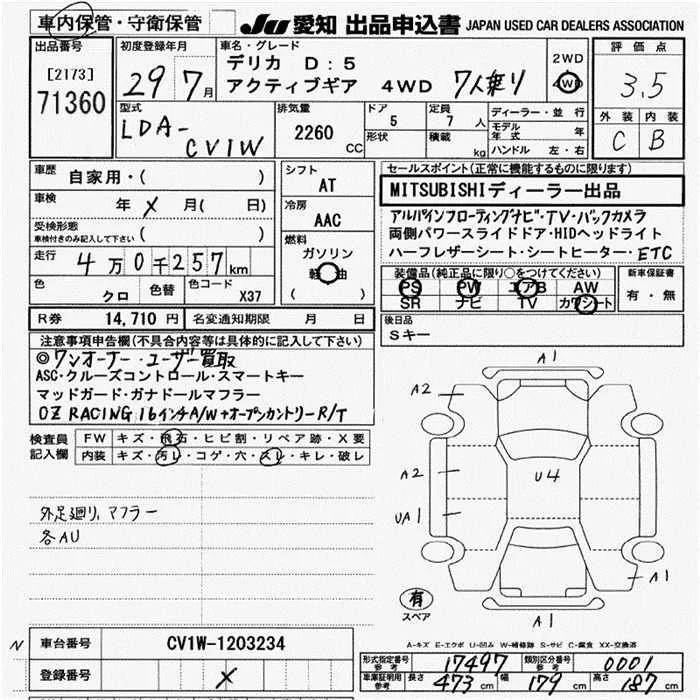 車内保管・守衛保管 JU 愛知 出品申込書 JAPAN USED CAR DEALERS ASSOCIATION
出品番号 [2173] 71360
初度登録年月 29 7月
車名・グレード デリカ D:5
アクティブギア 4WD 7人乗り
2WD
4WD
評価点 3.5
外装 内装
C B
型式 LDA-CV1W
排気量 2260 CC
ドア 5
形状
定員 7 人
積載 kg
ディーラー・並行
モデル年式 年
ハンドル 左・右
車歴 自家用・( )
車検 年 X 月( 日)
受検形態
車検付きのみ記入して下さい ( )
走行 4万0千257km
色 クロ
色替
色コード X37
シフト AT
冷房 AAC
燃料 ガソリン
軽油
( )
セールスポイント(正常に機能するものに限ります)
MITSUBISHIディーラー出品
アルパインフローティングナビ・TV・バックカメラ
両側パワースライドドア・HIDヘッドライト
ハーフレザーシート・シートヒーター・ETC
装備品(純正品に限り○をつけてください)
PS PW エアB AW
SR ナビ TV カワシート
新車保証書
有・無
R券 14,710 円 名変通知期限 月 日
後日品
Sキー
注意事項申告欄(不具合内容等は具体的に記入して下さい)
◎ワンオーナー・ユーザー買取
ASC・クルーズコントロール・スマートキー
マッドガード・ガナドールマフラー
OZ RACING 16インチA/W+オープンカントリーR/T
検査員記入欄
FW キズ・飛石・ヒビ割・リペア跡・X要
内装 キズ・汚レ・コゲ・穴・スレ・キレ・破レ
外足廻り、マフラー
各AU
A1
A2
A2
U4
UA1
A1
A1
有
スペア
A-キズ E-エクボ U-凹み W-補修跡 S-サビ C-腐食 XX-交換済
N 車台番号 CV1W-1203234
登録番号 X
形式指定番号 参考 17497 類別区分番号 参考 0001
車庫証明用 参考 長さ 473 cm 幅 179 cm 高さ 187 cm